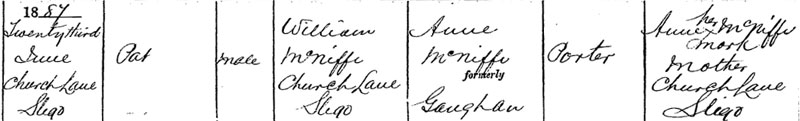 1887
Twenty third
June
Church Lane
Sligo
Pat
Male
William
McNiffe
Church Lane
Sligo
Anne
McNiffe
formerly
Gaughan
Porter
Anne her McNiffe
x
mark
Mother
Church Lane
Sligo